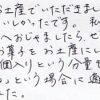 土産でいただきまし
いしかったです。私
へおじゃましたら、せ
お菓子をお土産にし
個入り)という分量も
。」という場合に適
た。